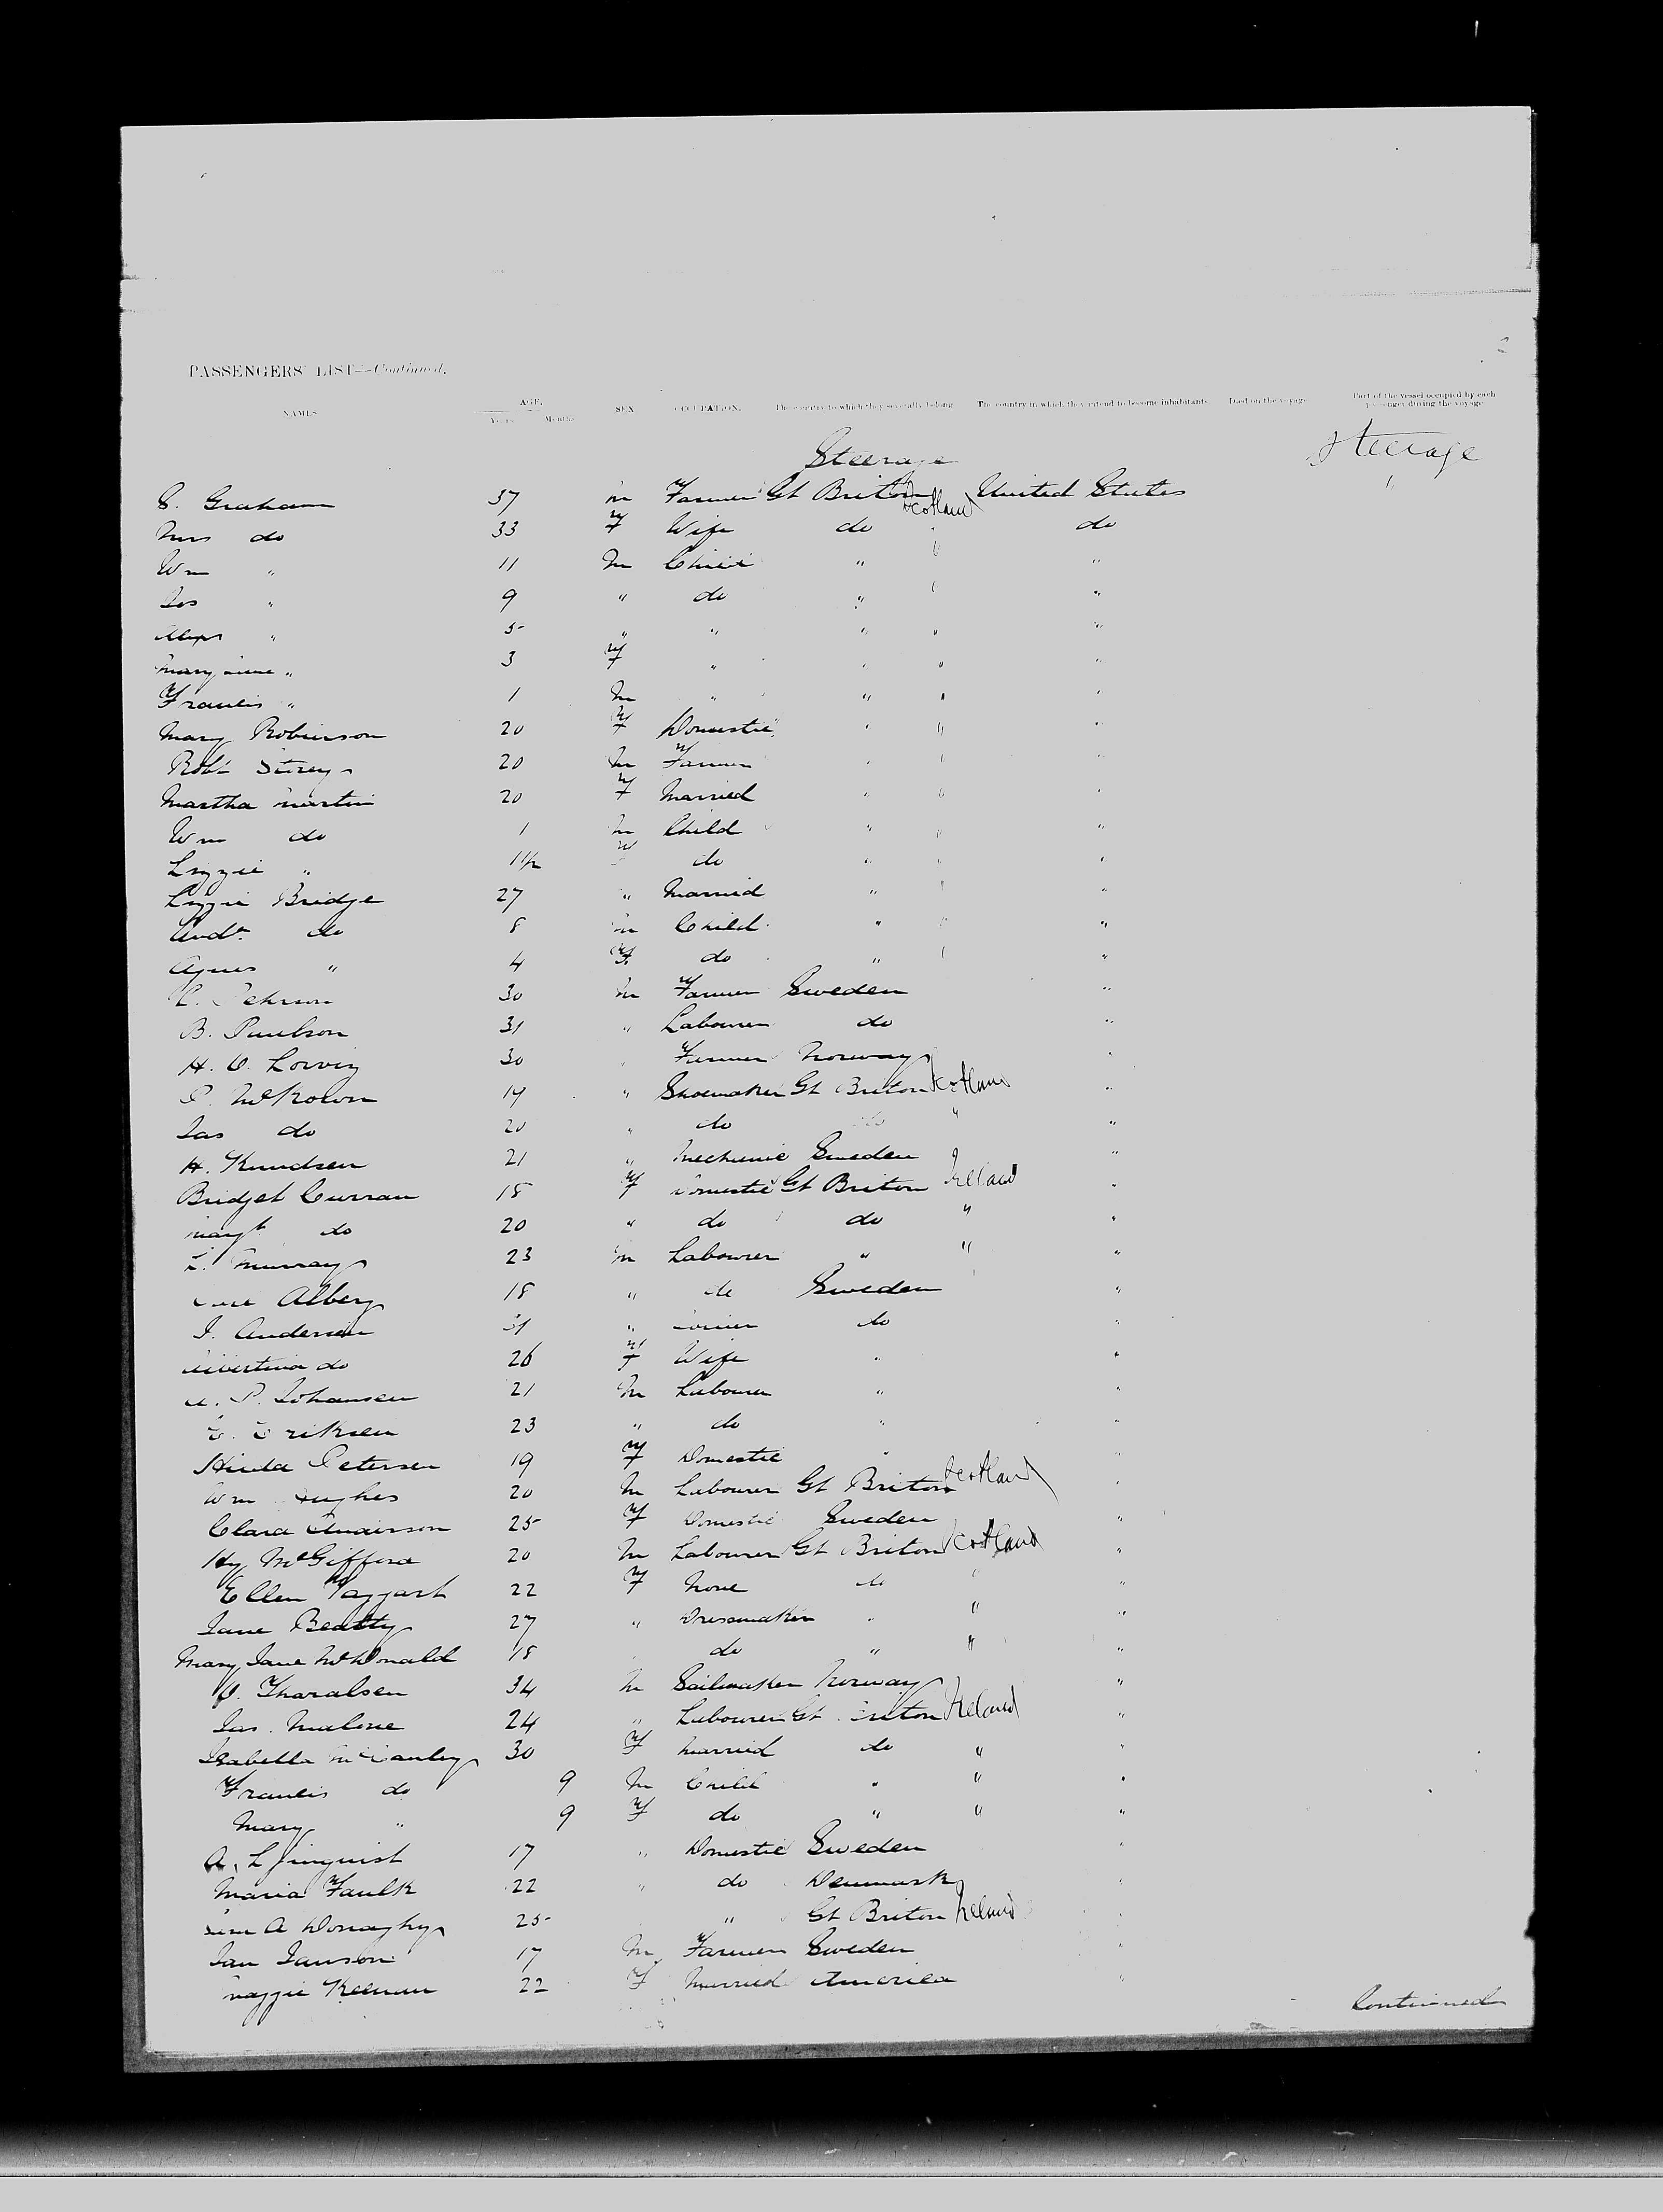 PASSENGERS' LIST—Continued.
NAMES AGE. Years Months SEX OCCUPATION. The country to which they severally belong The country in which they intend to become inhabitants. Died on the voyage Part of the vessel occupied by each passenger during the voyage
Steerage Steerage
S. Graham 37 m Farmer Gt Briton Scotland United States "
Mrs do 33 F Wife do " do
Wm " 11 M Child " " "
Jos " 9 " do " " "
Alexr " 5 " " " " "
Mary Jane " 3 F " " " "
Francis " 1 M " " " "
Mary Robinson 20 F Domestic " " "
Robt Storey 20 M Farmer " " "
Martha Martin 20 F Married " " "
Wm do 1 M Child " " "
Lizzie " do " " "
Lizzie Bridge 27 " Married " " "
Andw do 8 m Child " " "
Agnes " 4 F do " " "
30 M Farmer Sweden "
B. Paulson 31 " Labourer do "
H. O. 30 " Farmer Norway "
McKown 19 " Shoemaker Gt Briton Scotland "
Jas do 20 " do do " "
H. Knudsen 21 " Mechanic Sweden "
Bridget Curran 18 F Domestic Gt Briton Ireland "
Margt do 20 " do do " "
Murray 23 m Labourer " " "
Alberg 18 " do Sweden "
J. Andersen 31 " do "
Albertina do 26 F Wife " "
P. Johansen 21 M Labourer " "
E. Eriksen 23 " do " "
Hilda Petersen 19 F Domestic " "
Wm Hughes 20 M Labourer Gt Briton Scotland "
Clara Anderson 25 F Domestic Sweden "
Hy McGifford 20 M Labourer Gt Briton Scotland "
Ellen Taggart 22 F None do " "
Jane Beatty 27 " Dressmaker " " "
Mary Jane McDonald 18 " do " " "
O. Tharalsen 34 M Sailmaker Norway "
Jas. Malone 24 " Labourer Gt Briton Ireland "
Isabella McCauley 30 F Married do " "
Francis do 9 M Child " " "
Mary " 9 F do " " "
A. Ljinquist 17 " Domestic Sweden "
Maria Faulk 22 " do Denmark "
A Donaghy 25 " Gt Briton Ireland "
Jan Janson 17 M Farmer Sweden "
Maggie Keenan 22 F Married America "
Continued